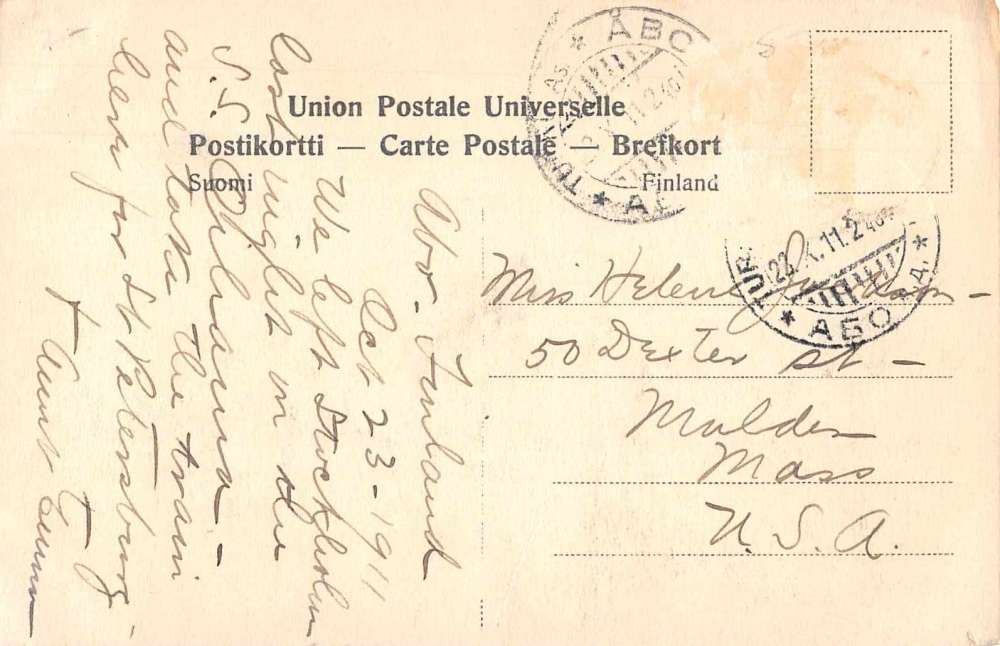 Union Postale Universelle
Postikortti — Carte Postale — Brefkort
Suomi Finland
ÅBO
TUR
22.X.11.2
ÅBO
Abo - Finland
Oct 23 - 1911
We left Stockholm
last night on the
S.S.
and take the train
here for St Petersburg -
Aunt Emma
Miss Helen
50 Dexter St -
Malden
Mass
U.S.A.